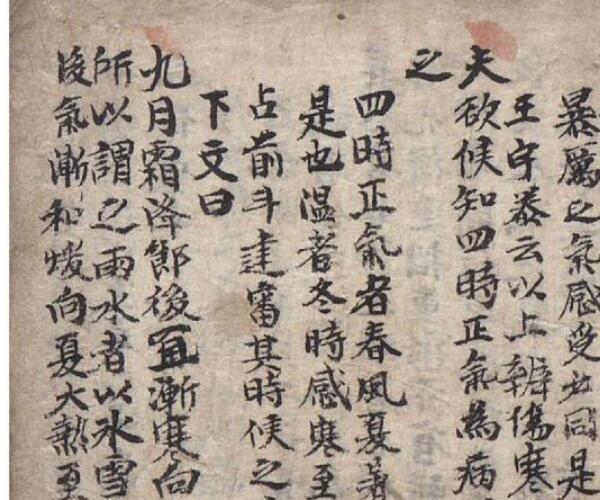 暴厲之氣感受必同是
王宇泰云以上辨傷寒
夫欲候知四時正氣為病
之
四時正氣者春風夏暑
是也溫者冬時感寒至
占前斗建審其時候之
下文曰
九月霜降節後宜漸寒向
所以謂之雨水者以冰雪
後氣漸和煖向夏大熱至